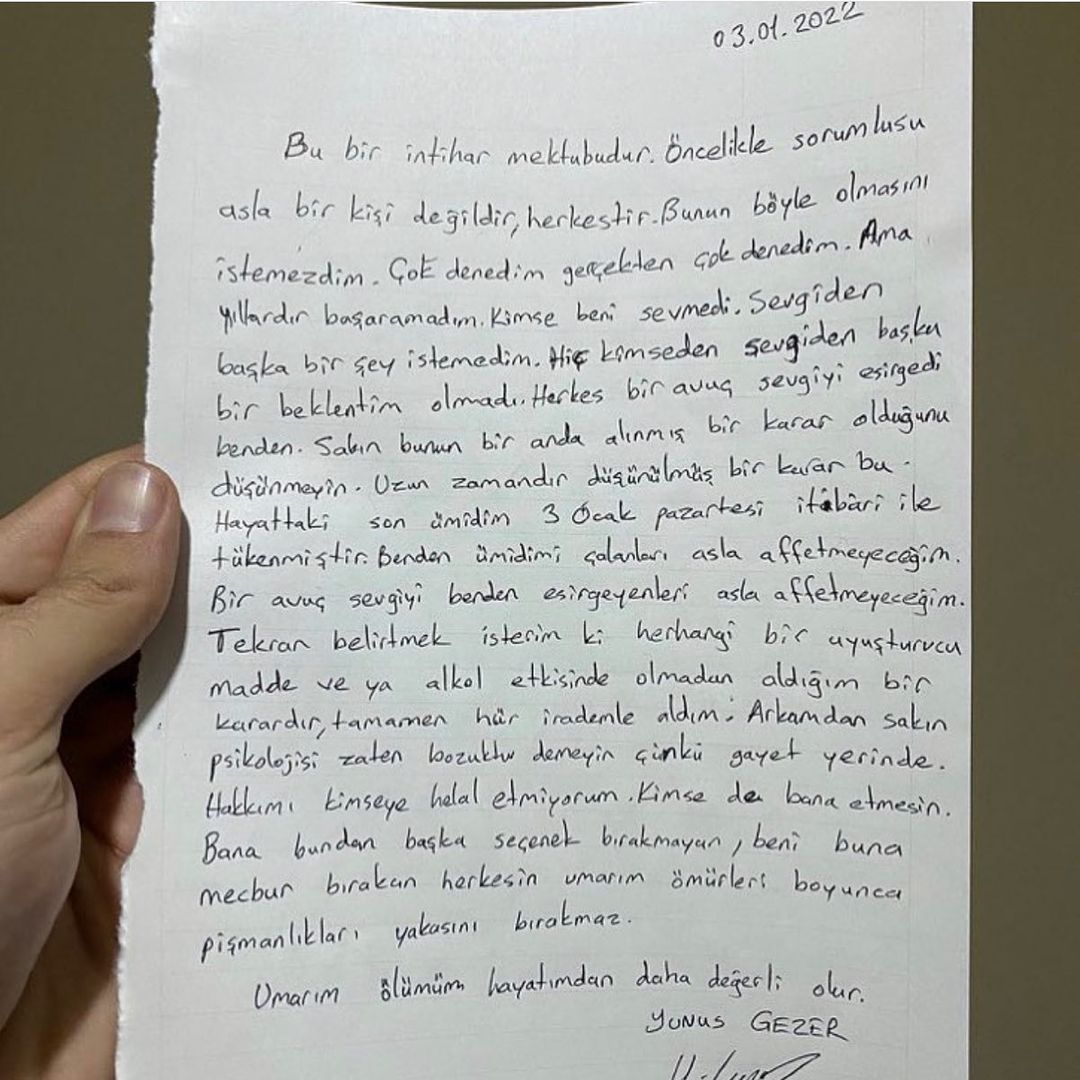 03.01.2022
Bu bir intihar mektubudur. Öncelikle sorumlusu
asla bir kişi değildir, herkestir. Bunun böyle olmasını
istemezdim. Çok denedim gerçekten çok denedim. Ama
yıllardır başaramadım. Kimse beni sevmedi. Sevgiden
başka bir şey istemedim. Hiç kimseden sevgiden başka
bir beklentim olmadı. Herkes bir avuç sevgiyi esirgedi
benden. Sakın bunun bir anda alınmış bir karar olduğunu
düşünmeyin. Uzun zamandır düşünülmüş bir karar bu.
Hayattaki son ümidim 3 Ocak pazartesi itibari ile
tükenmiştir. Benden ümidimi çalanları asla affetmeyeceğim.
Bir avuç sevgiyi benden esirgeyenleri asla affetmeyeceğim.
Tekran belirtmek isterim ki herhangi bir uyuşturucu
madde ve ya alkol etkisinde olmadan aldığım bir
karardır, tamamen hür irademle aldım. Arkamdan sakın
psikolojisi zaten bozuktu demeyin çünkü gayet yerinde.
Hakkımı kimseye helal etmiyorum. Kimse de bana etmesin.
Bana bundan başka seçenek bırakmayan, beni buna
mecbur bırakan herkesin umarım ömürleri boyunca
pişmanlıkları yakasını bırakmaz.
Umarım ölümüm hayatımdan daha değerli olur.
YUNUS GEZER